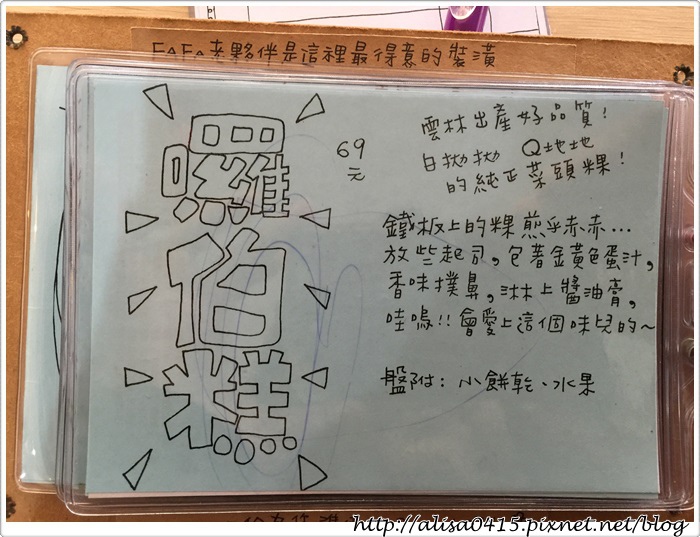 FaFa來夥伴是這裡最得意的裝潢
囉伯糕
69
元
雲林出產好品質!
白拋拋 Q地地
的純正菜頭粿!
鐵板上的粿煎乎赤赤...
放些起司,包著金黃色蛋汁,
香味撲鼻,淋上醬油膏,
哇嗚!!會愛上這個味兒的~
盤附:小餅乾、水果
http://alisa0415.pixnet.net/blog